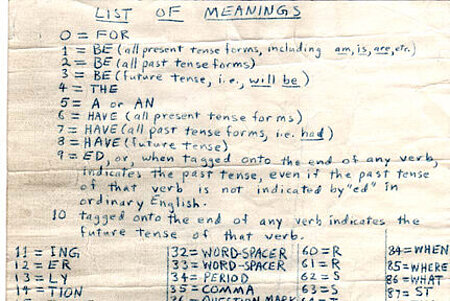 LIST OF MEANINGS
0 = FOR
1 = BE (all present tense forms, including am, is, are, etc.)
2 = BE (all past tense forms)
3 = BE (future tense, i.e., will be)
4 = THE
5 = A or AN
6 = HAVE (all present tense forms)
7 = HAVE (all past tense forms, i.e. had)
8 = HAVE (future tense)
9 = ED, or, when tagged onto the end of any verb,
indicates the past tense, even if the past tense
of that verb is not indicated by "ed" in
ordinary English.
10 tagged onto the end of any verb indicates the
future tense of that verb.
11 = ING
12 = ER
13 = LY
14 = TION
32 = WORD-SPACER
33 = WORD-SPACER
34 = PERIOD
35 = COMMA
36 = QUESTION MARK
60 = R
61 = R
62 = S
63 = S
84 = WHEN
85 = WHERE
86 = WHAT
87 = ST